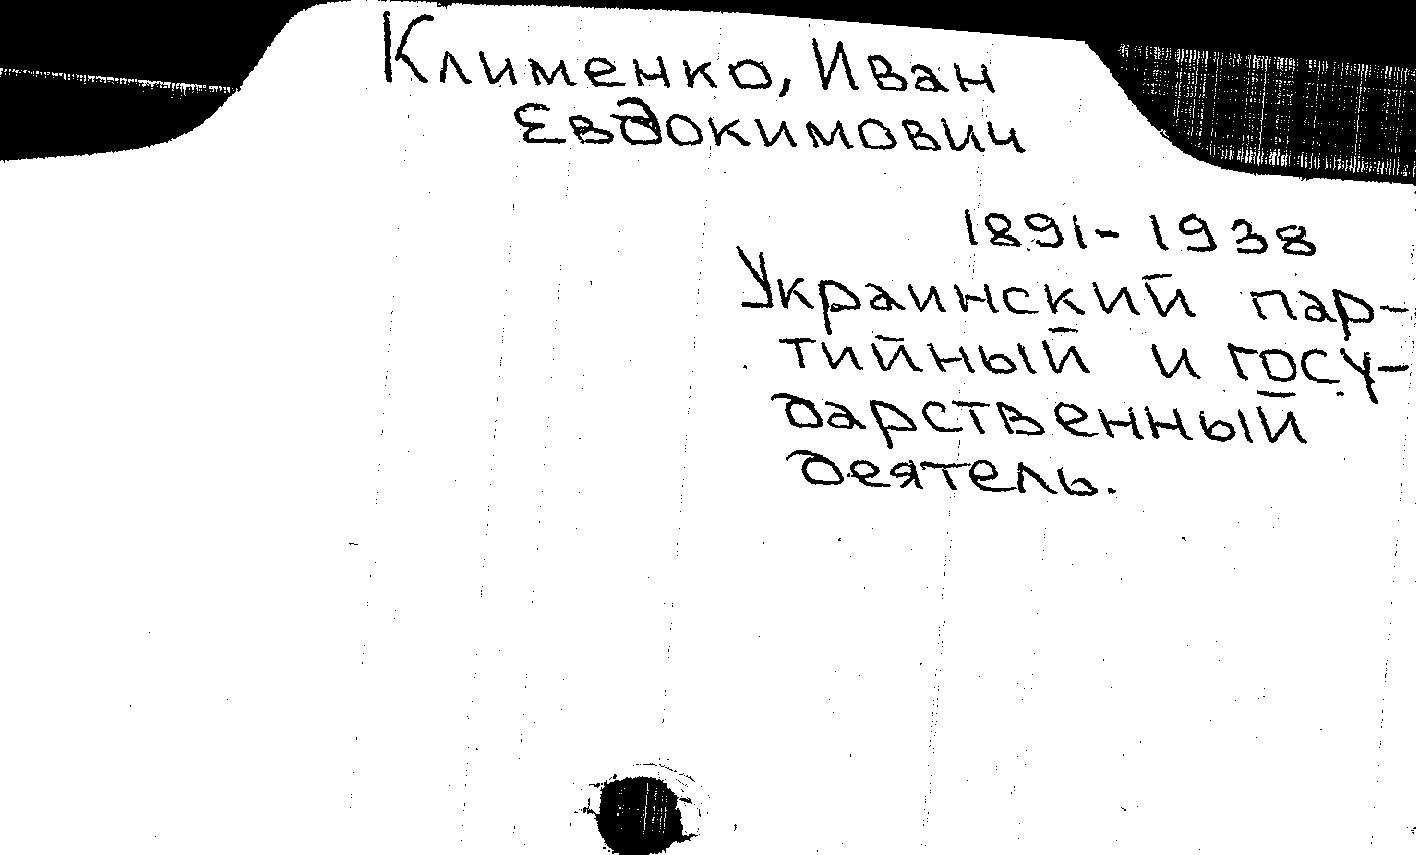 Клименко, Иван
Евдокимович
1891-1938
Украинский пар-
тийный и госу-
дарственный
деятель.